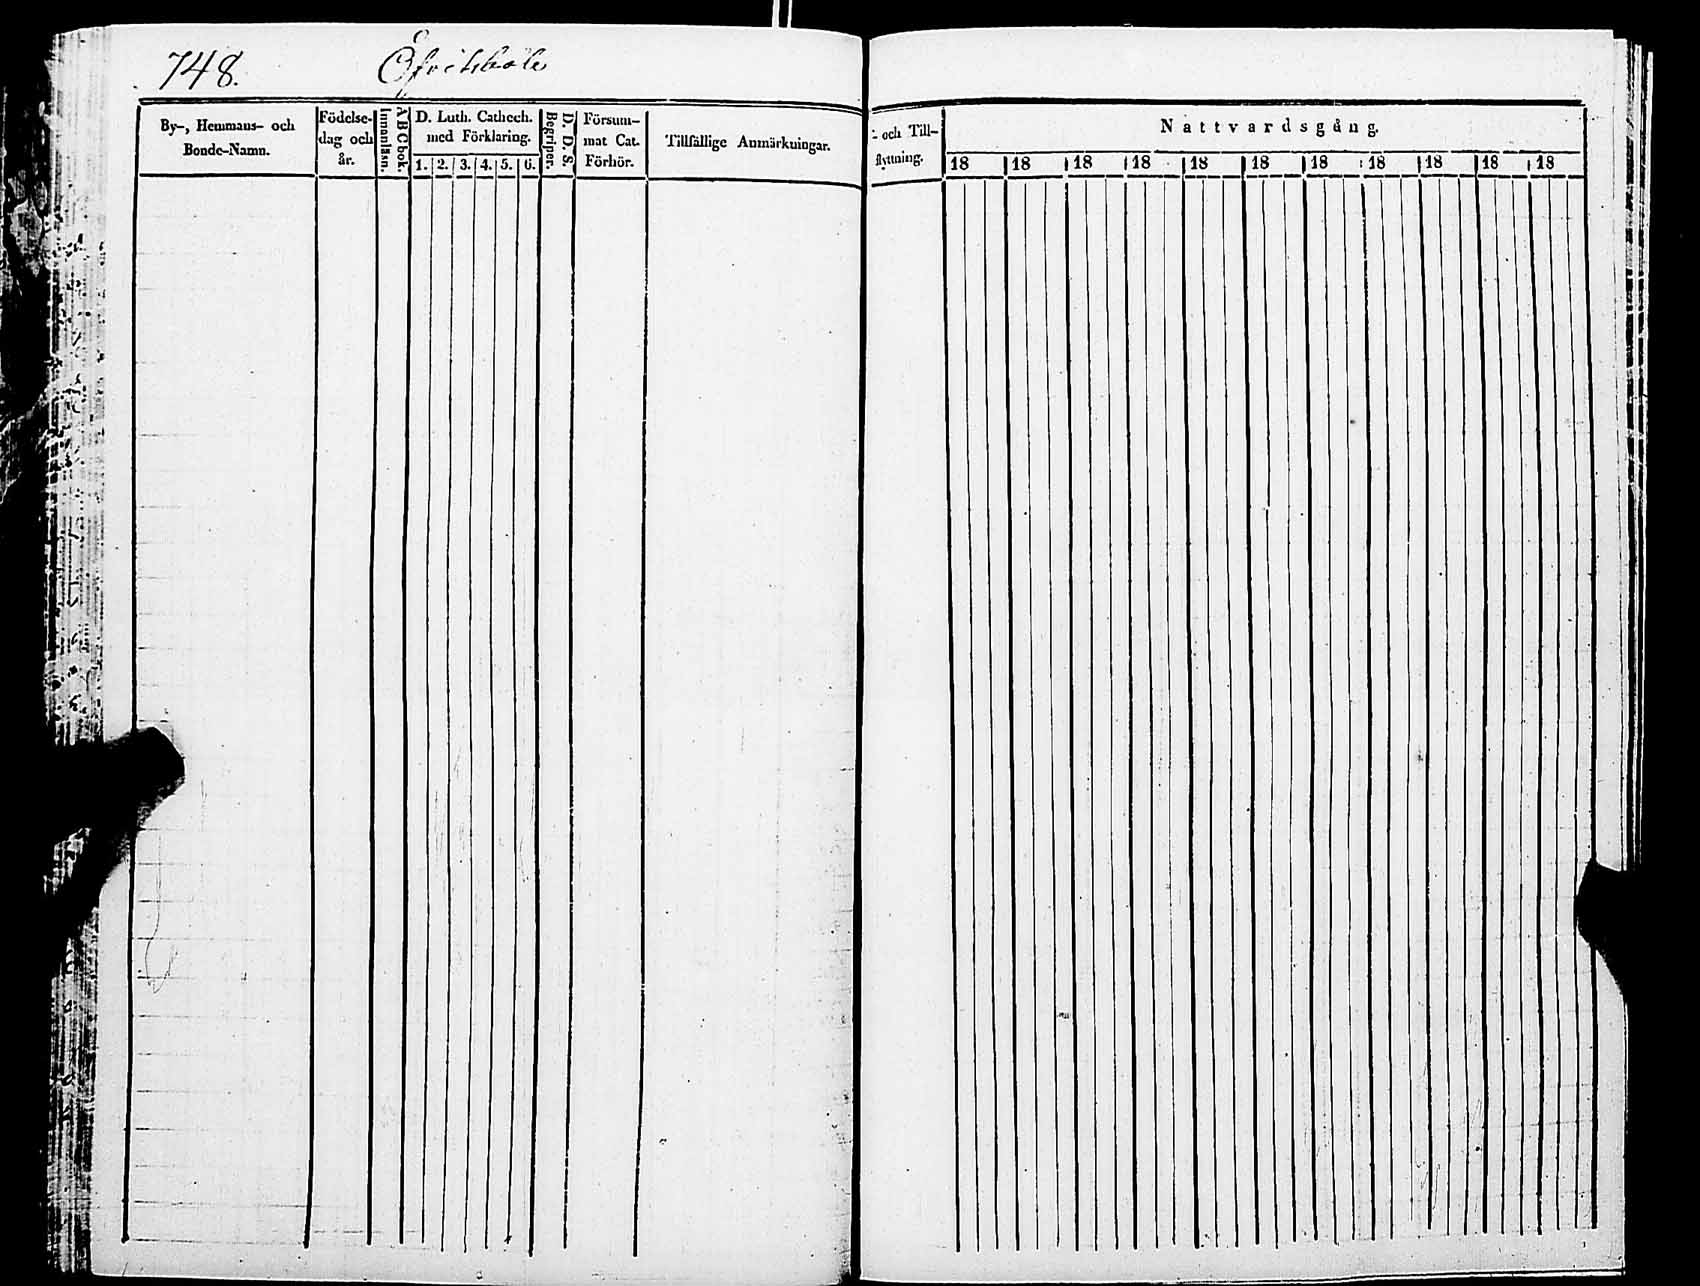 748.
By-, Hemmans- och
Bonde-Namn.
Födelse-
dag och
år.
A B C bok.
Innanläsn.
D. Luth. Cathech.
med Förklaring.
1. 2. 3. 4. 5. 6.
D. D. S.
Begriper.
Försum-
mat Cat.
Förhör.
Tillfällige Anmärkningar.
- och Till-
flyttning.
Nattvardsgång.
18 18 18 18 18 18 18 18 18 18 18